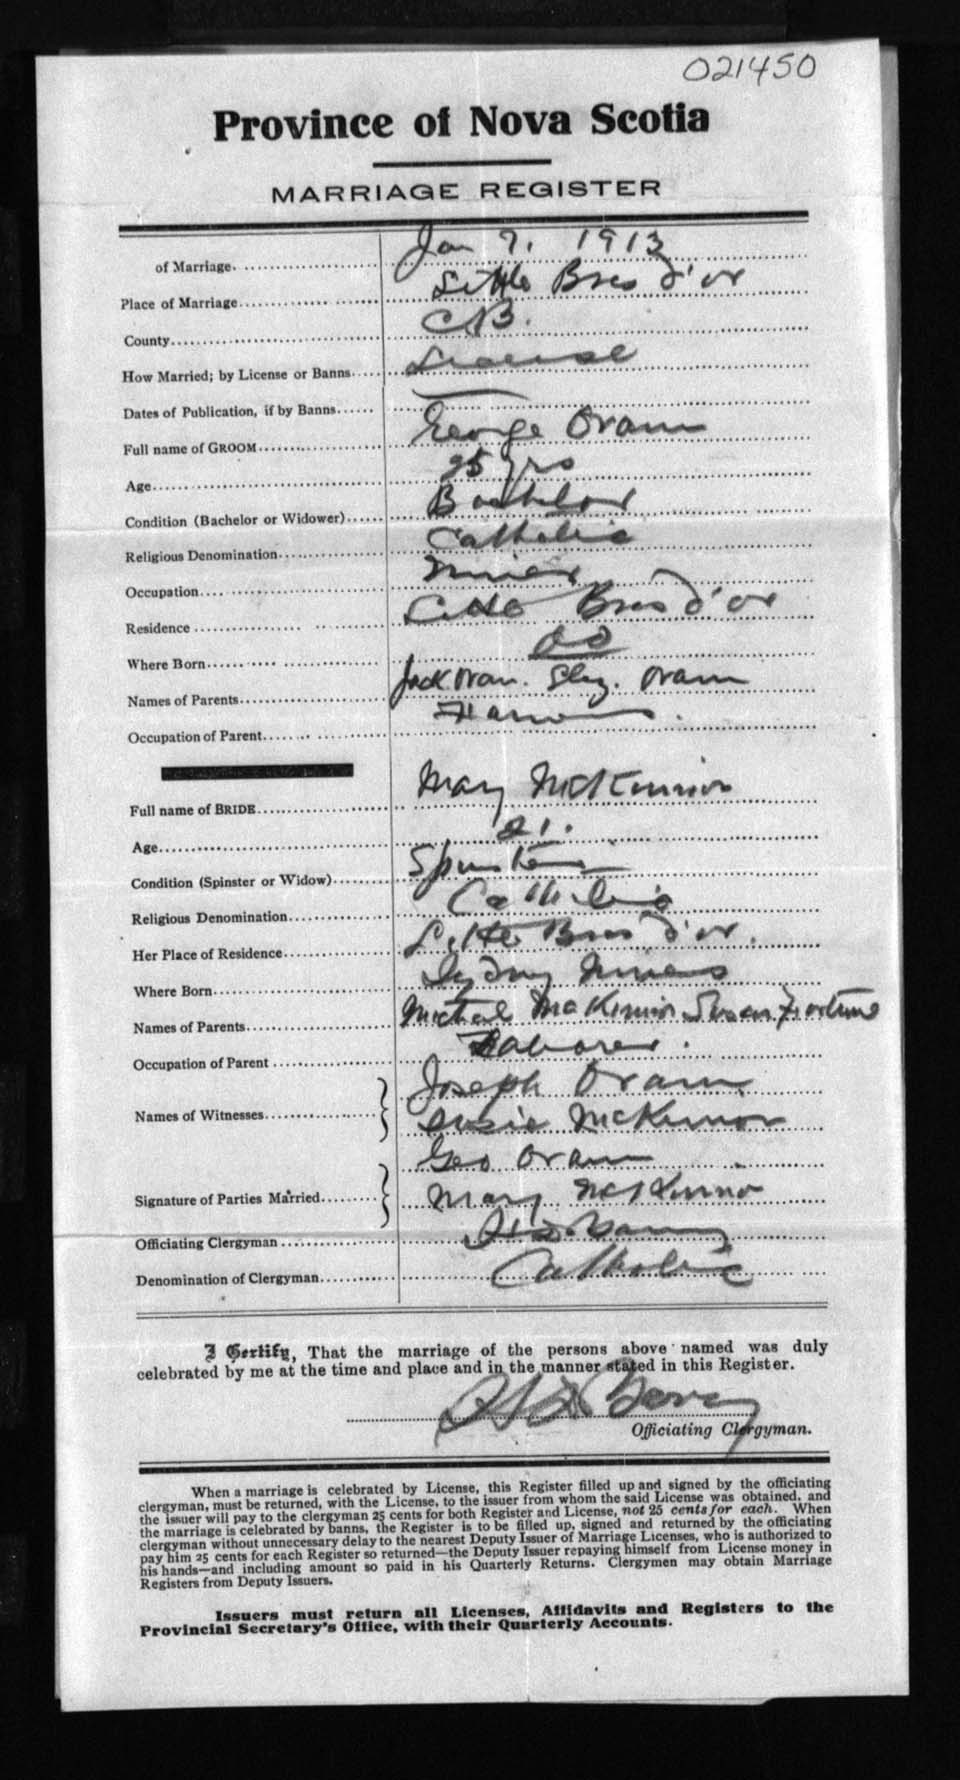 021450
Province of Nova Scotia
MARRIAGE REGISTER
of Marriage. Jan 7. 1913
Place of Marriage Little Bras d'or
County CB.
How Married; by License or Banns License
Dates of Publication, if by Banns
Full name of GROOM George Oram
Age 25 yrs
Condition (Bachelor or Widower) Bachelor
Religious Denomination Catholic
Occupation Miner
Residence Little Bras d'or
Where Born do
Names of Parents Jack Oram. Eliz. Oram
Occupation of Parent
Full name of BRIDE Mary McKinnon
Age 21.
Condition (Spinster or Widow) Spinster
Religious Denomination Catholic
Her Place of Residence Little Bras d'or.
Where Born Sydney Mines
Names of Parents Michael McKinnon Susan Fortune
Occupation of Parent Laborer.
Names of Witnesses Joseph Oram
Susie McKinnon
Geo Oram
Signature of Parties Married Mary McKinnon
Officiating Clergyman
Denomination of Clergyman Catholic
I Certify, That the marriage of the persons above named was duly
celebrated by me at the time and place and in the manner stated in this Register.
Officiating Clergyman.
When a marriage is celebrated by License, this Register filled up and signed by the officiating
clergyman, must be returned, with the License, to the issuer from whom the said License was obtained, and
the issuer will pay to the clergyman 25 cents for both Register and License, not 25 cents for each. When
the marriage is celebrated by banns, the Register is to be filled up, signed and returned by the officiating
clergyman without unnecessary delay to the nearest Deputy Issuer of Marriage Licenses, who is authorized to
pay him 25 cents for each Register so returned—the Deputy Issuer repaying himself from License money in
his hands—and including amount so paid in his Quarterly Returns. Clergymen may obtain Marriage
Registers from Deputy Issuers.
Issuers must return all Licenses, Affidavits and Registers to the
Provincial Secretary's Office, with their Quarterly Accounts.